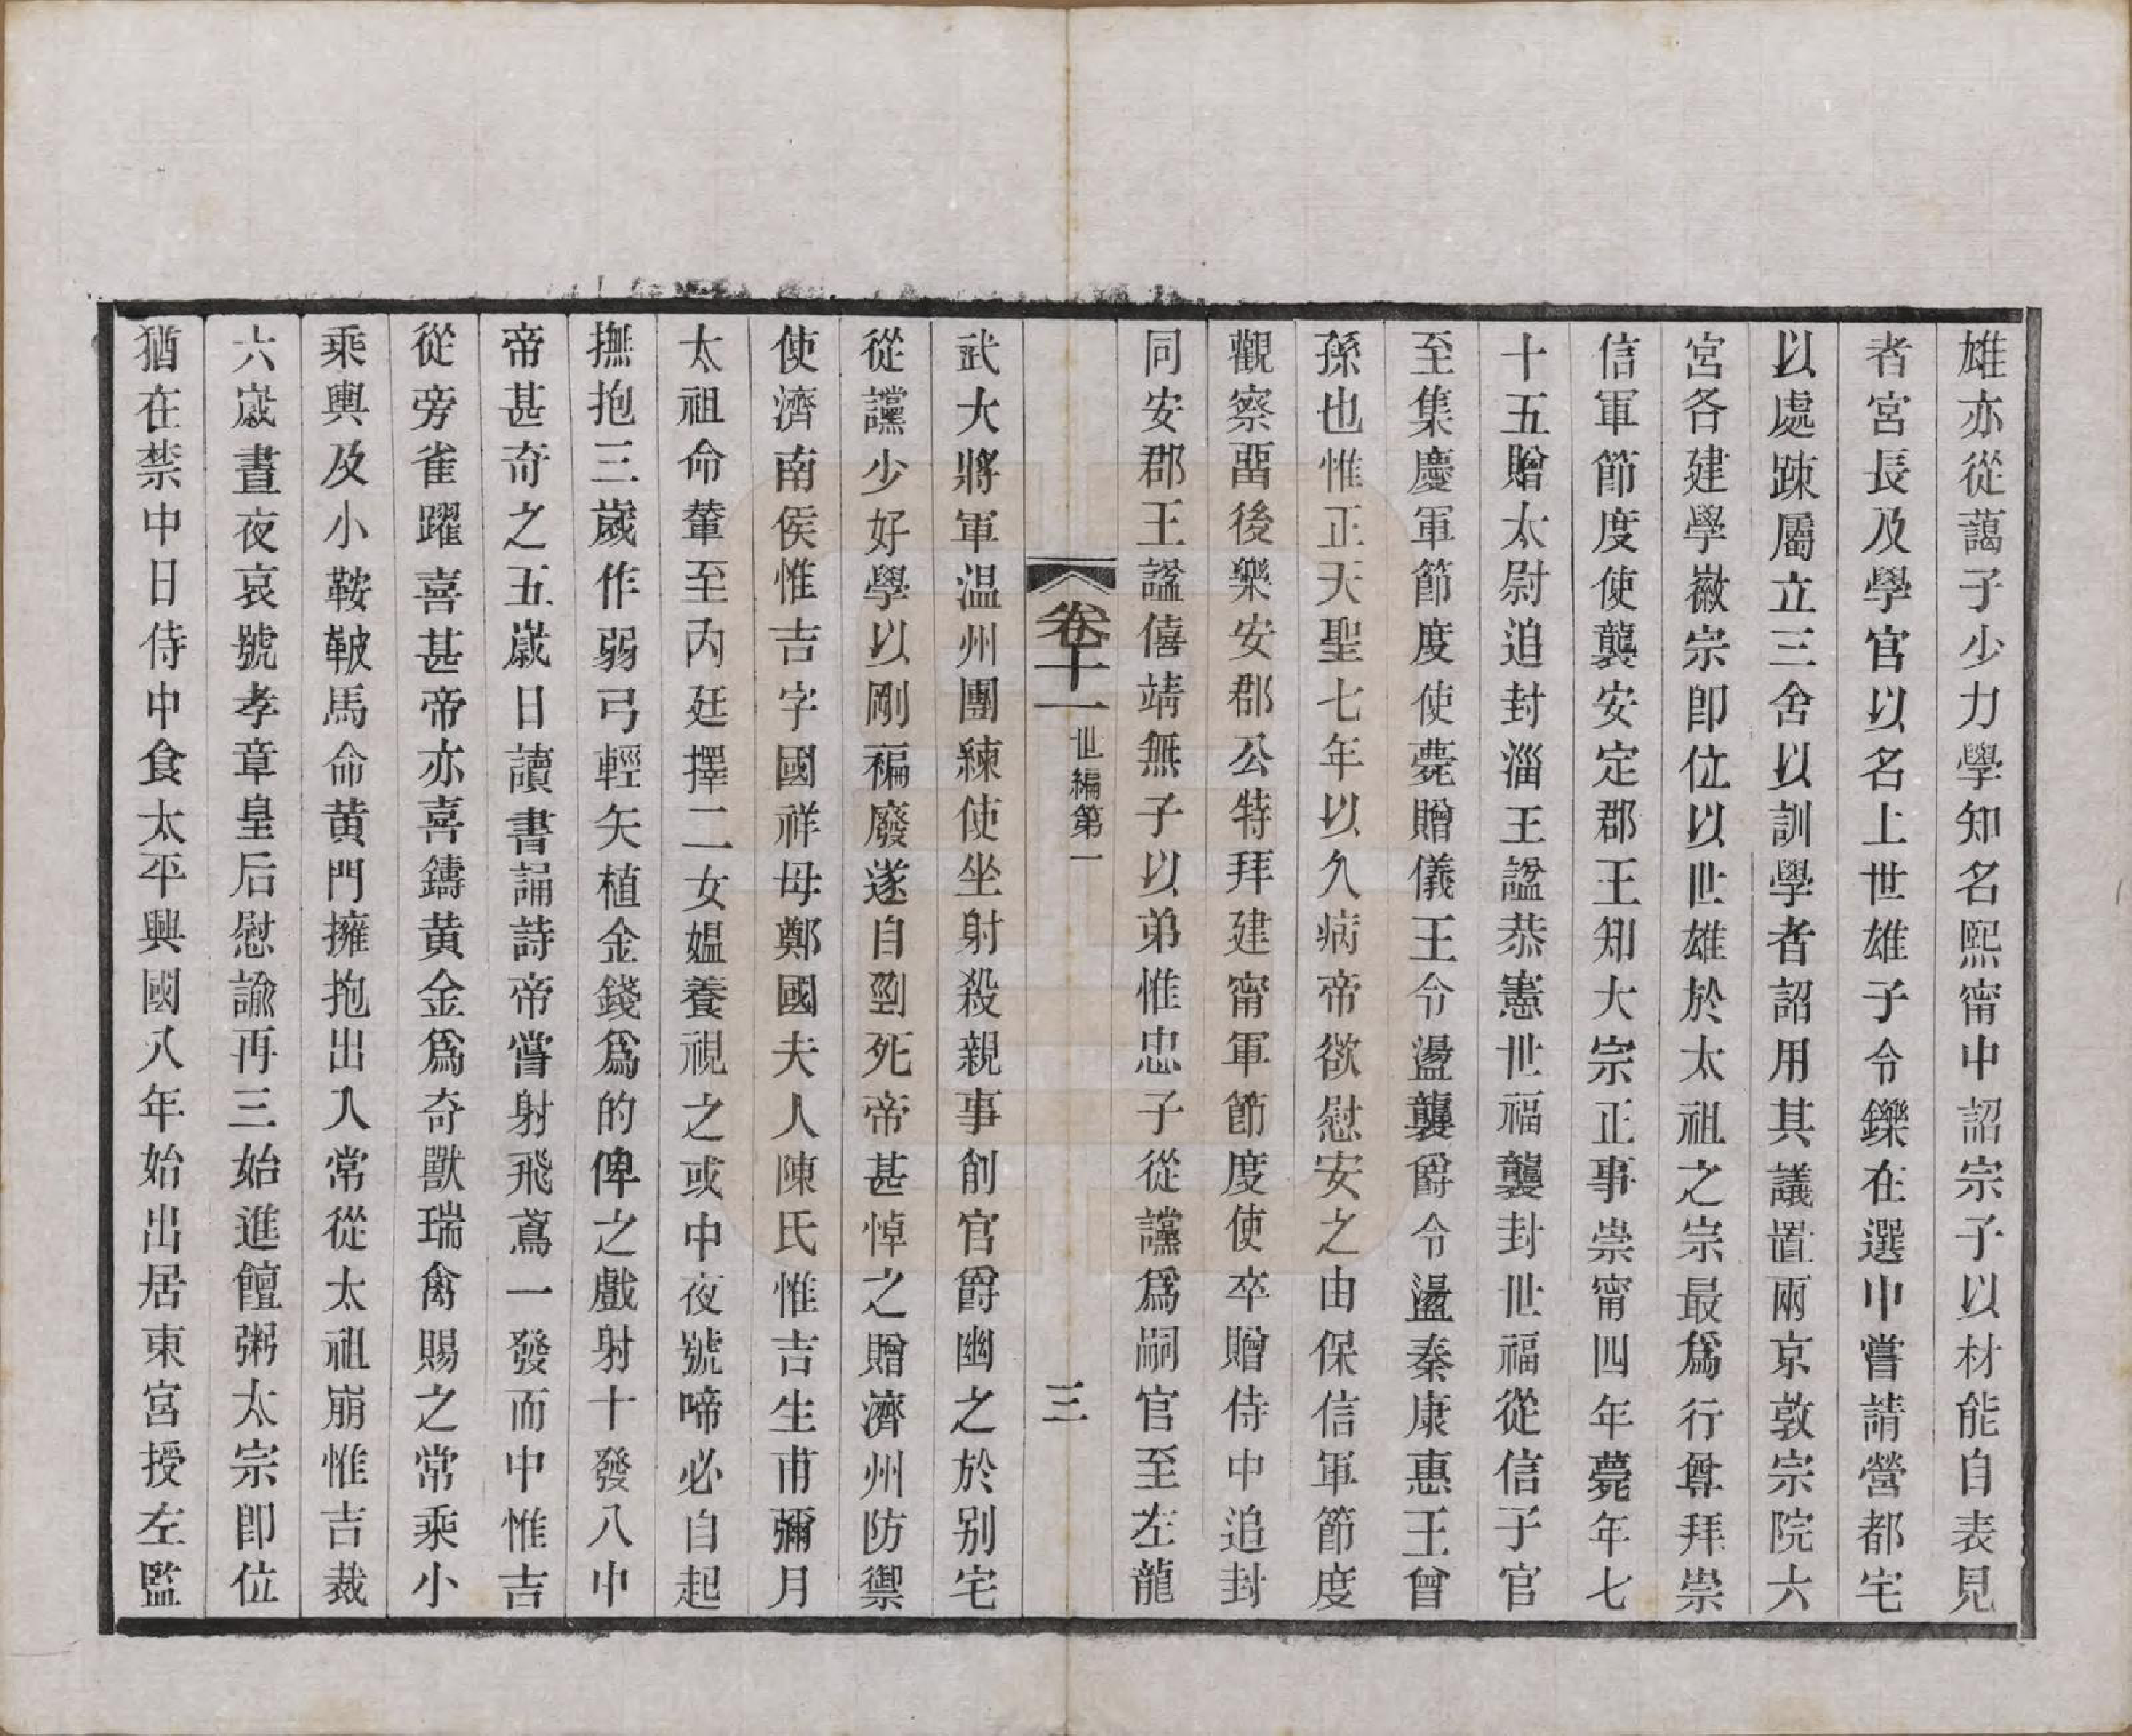 雄亦從藹子少力學知名熙甯中詔宗子以材能自表見
者宮長及學官以名上世雄子令鑠在選中嘗請營都宅
以處疎屬立三舍以訓學者詔用其議置兩京敦宗院六
宮各建學徽宗卽位以世雄於太祖之宗最爲行尊拜崇
信軍節度使襲安定郡王知大宗正事崇甯四年薨年七
十五贈太尉追封淄王諡恭憲世福襲封世福從信子官
至集慶軍節度使薨贈儀王令盪襲爵令盪秦康惠王曾
孫也惟正天聖七年以久病帝欲慰安之由保信軍節度
觀察畱後樂安郡公特拜建甯軍節度使卒贈侍中追封
同安郡王諡僖靖無子以弟惟忠子從讜爲嗣官至左龍
卷十一 世編第一 三
武大將軍温州團練使坐射殺親事削官爵幽之於别宅
從讜少好學以剛褊廢遂自剄死帝甚悼之贈濟州防禦
使濟南侯惟吉字國祥母鄭國夫人陳氏惟吉生甫彌月
太祖命輦至内廷擇二女媪養視之或中夜號啼必自起
撫抱三歲作弱弓輕矢植金錢爲的俾之戲射十發八中
帝甚奇之五歲日讀書誦詩帝嘗射飛鳶一發而中惟吉
從旁雀躍喜甚帝亦喜鑄黄金爲奇獸瑞禽賜之常乘小
乘輿及小鞍鞁馬命黄門擁抱出入常從太祖崩惟吉裁
六歲晝夜哀號孝章皇后慰諭再三始進饘粥太宗卽位
猶在禁中日侍中食太平興國八年始出居東宮授左監